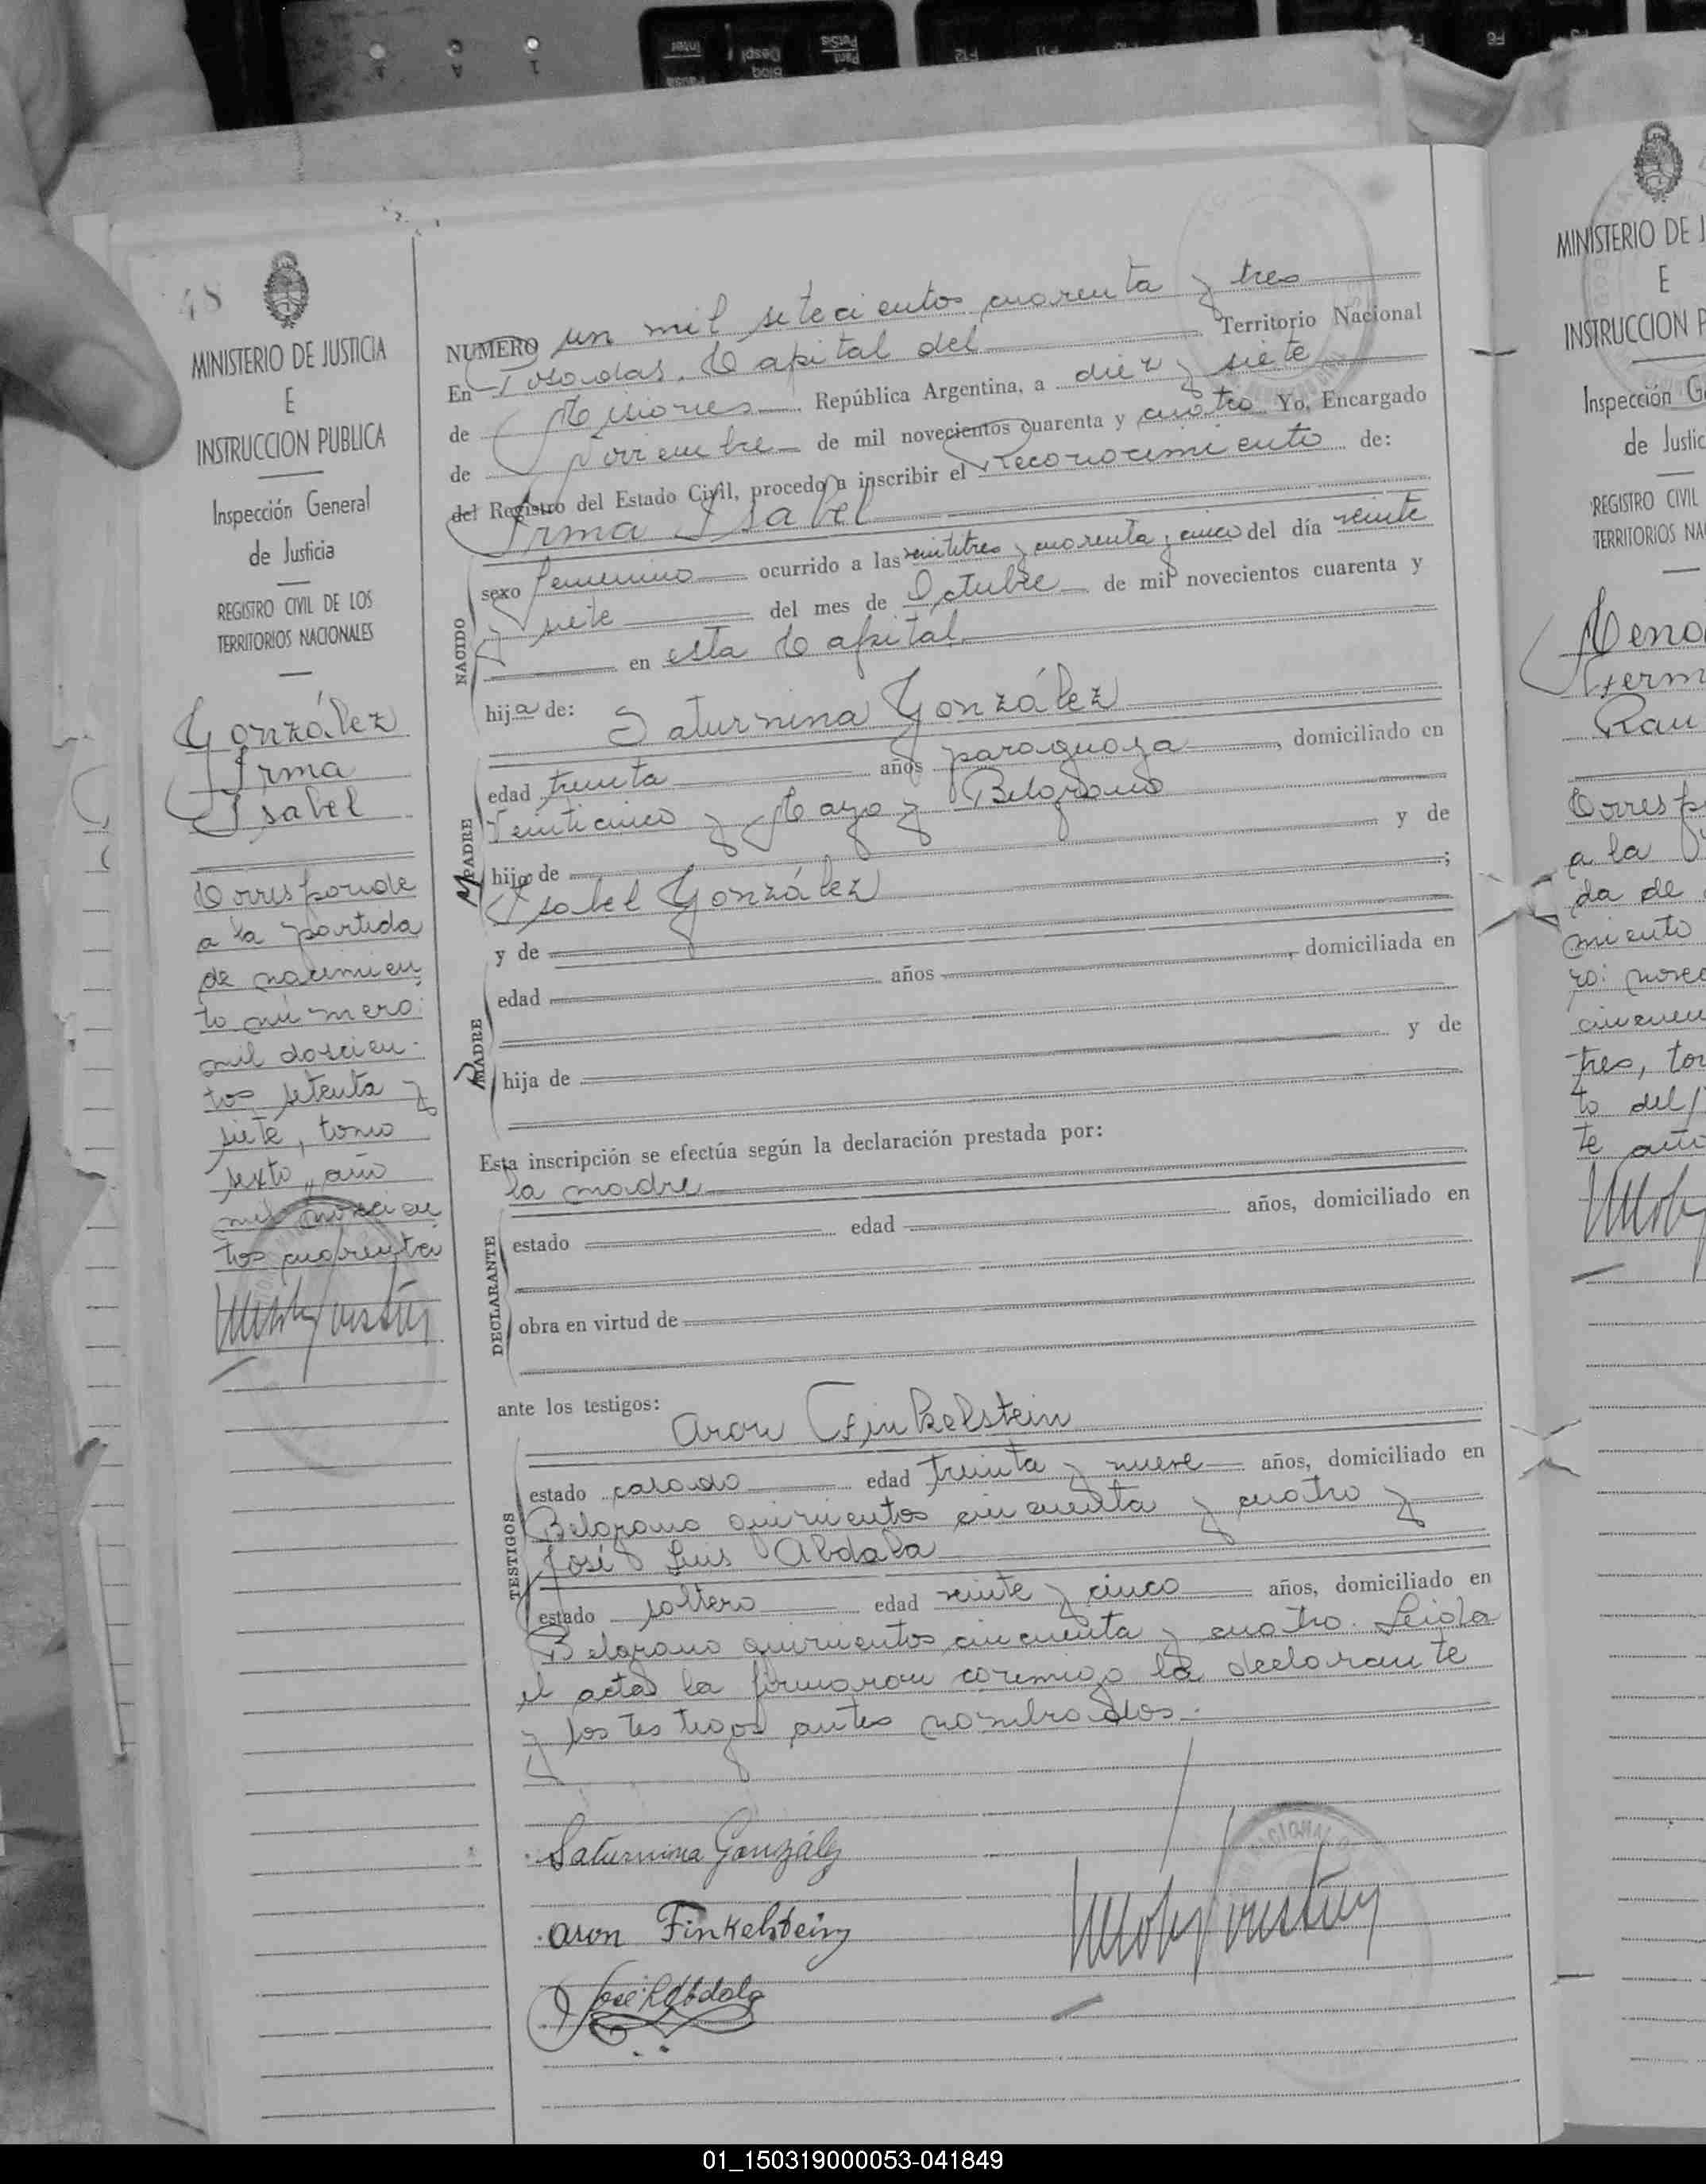 48
MINISTERIO DE JUSTICIA
E
INSTRUCCION PUBLICA
Inspección General
de Justicia
REGISTRO CIVIL DE LOS
TERRITORIOS NACIONALES
González
Irma
Isabel
Corresponde
a la partida
de nacimien
to número:
mil doscien-
tos setenta y
siete, tomo
sexto, año
mil novecien
tos cuarenta
NUMERO un mil setecientos cuarenta y tres
En Posadas, Capital del Territorio Nacional
de Misiones República Argentina, a diez y siete
de Noviembre de mil novecientos cuarenta y cuatro Yo, Encargado
del Registro del Estado Civil, procedo a inscribir el Reconocimiento de:
Irma Isabel
NACIDO
sexo femenino ocurrido a las veintitres y cuarenta y cinco del día veinte
y siete del mes de Octubre de mil novecientos cuarenta y
en esta Capital
hija de: Saturnina González
MADRE
edad treinta años paraguaya, domiciliado en
Veinticinco y Mayo y Belgrano
hija de y de
Isabel González ;
y de
PADRE
edad años , domiciliada en
hija de y de
Esta inscripción se efectúa según la declaración prestada por:
la madre
DECLARANTE
estado edad años, domiciliado en
obra en virtud de
ante los testigos: Aron Finkelstein
TESTIGOS
estado casado edad treinta y nueve años, domiciliado en
Belgrano quinientos cincuenta y cuatro y
José Luis Abdala
estado soltero edad veinte y cinco años, domiciliado en
Belgrano quinientos cincuenta y cuatro. Leida
el acta la firmaron conmigo la declarante
y los testigos antes nombrados.
Saturnina González
Aron Finkelstein
José L Abdala
MINISTERIO DE J
E
INSTRUCCION P
Inspección G
de Justic
REGISTRO CIVIL
TERRITORIOS NA
Corresp
a la
da de
miento
cincuen
tres, to
to del
te año
01_150319000053-041849